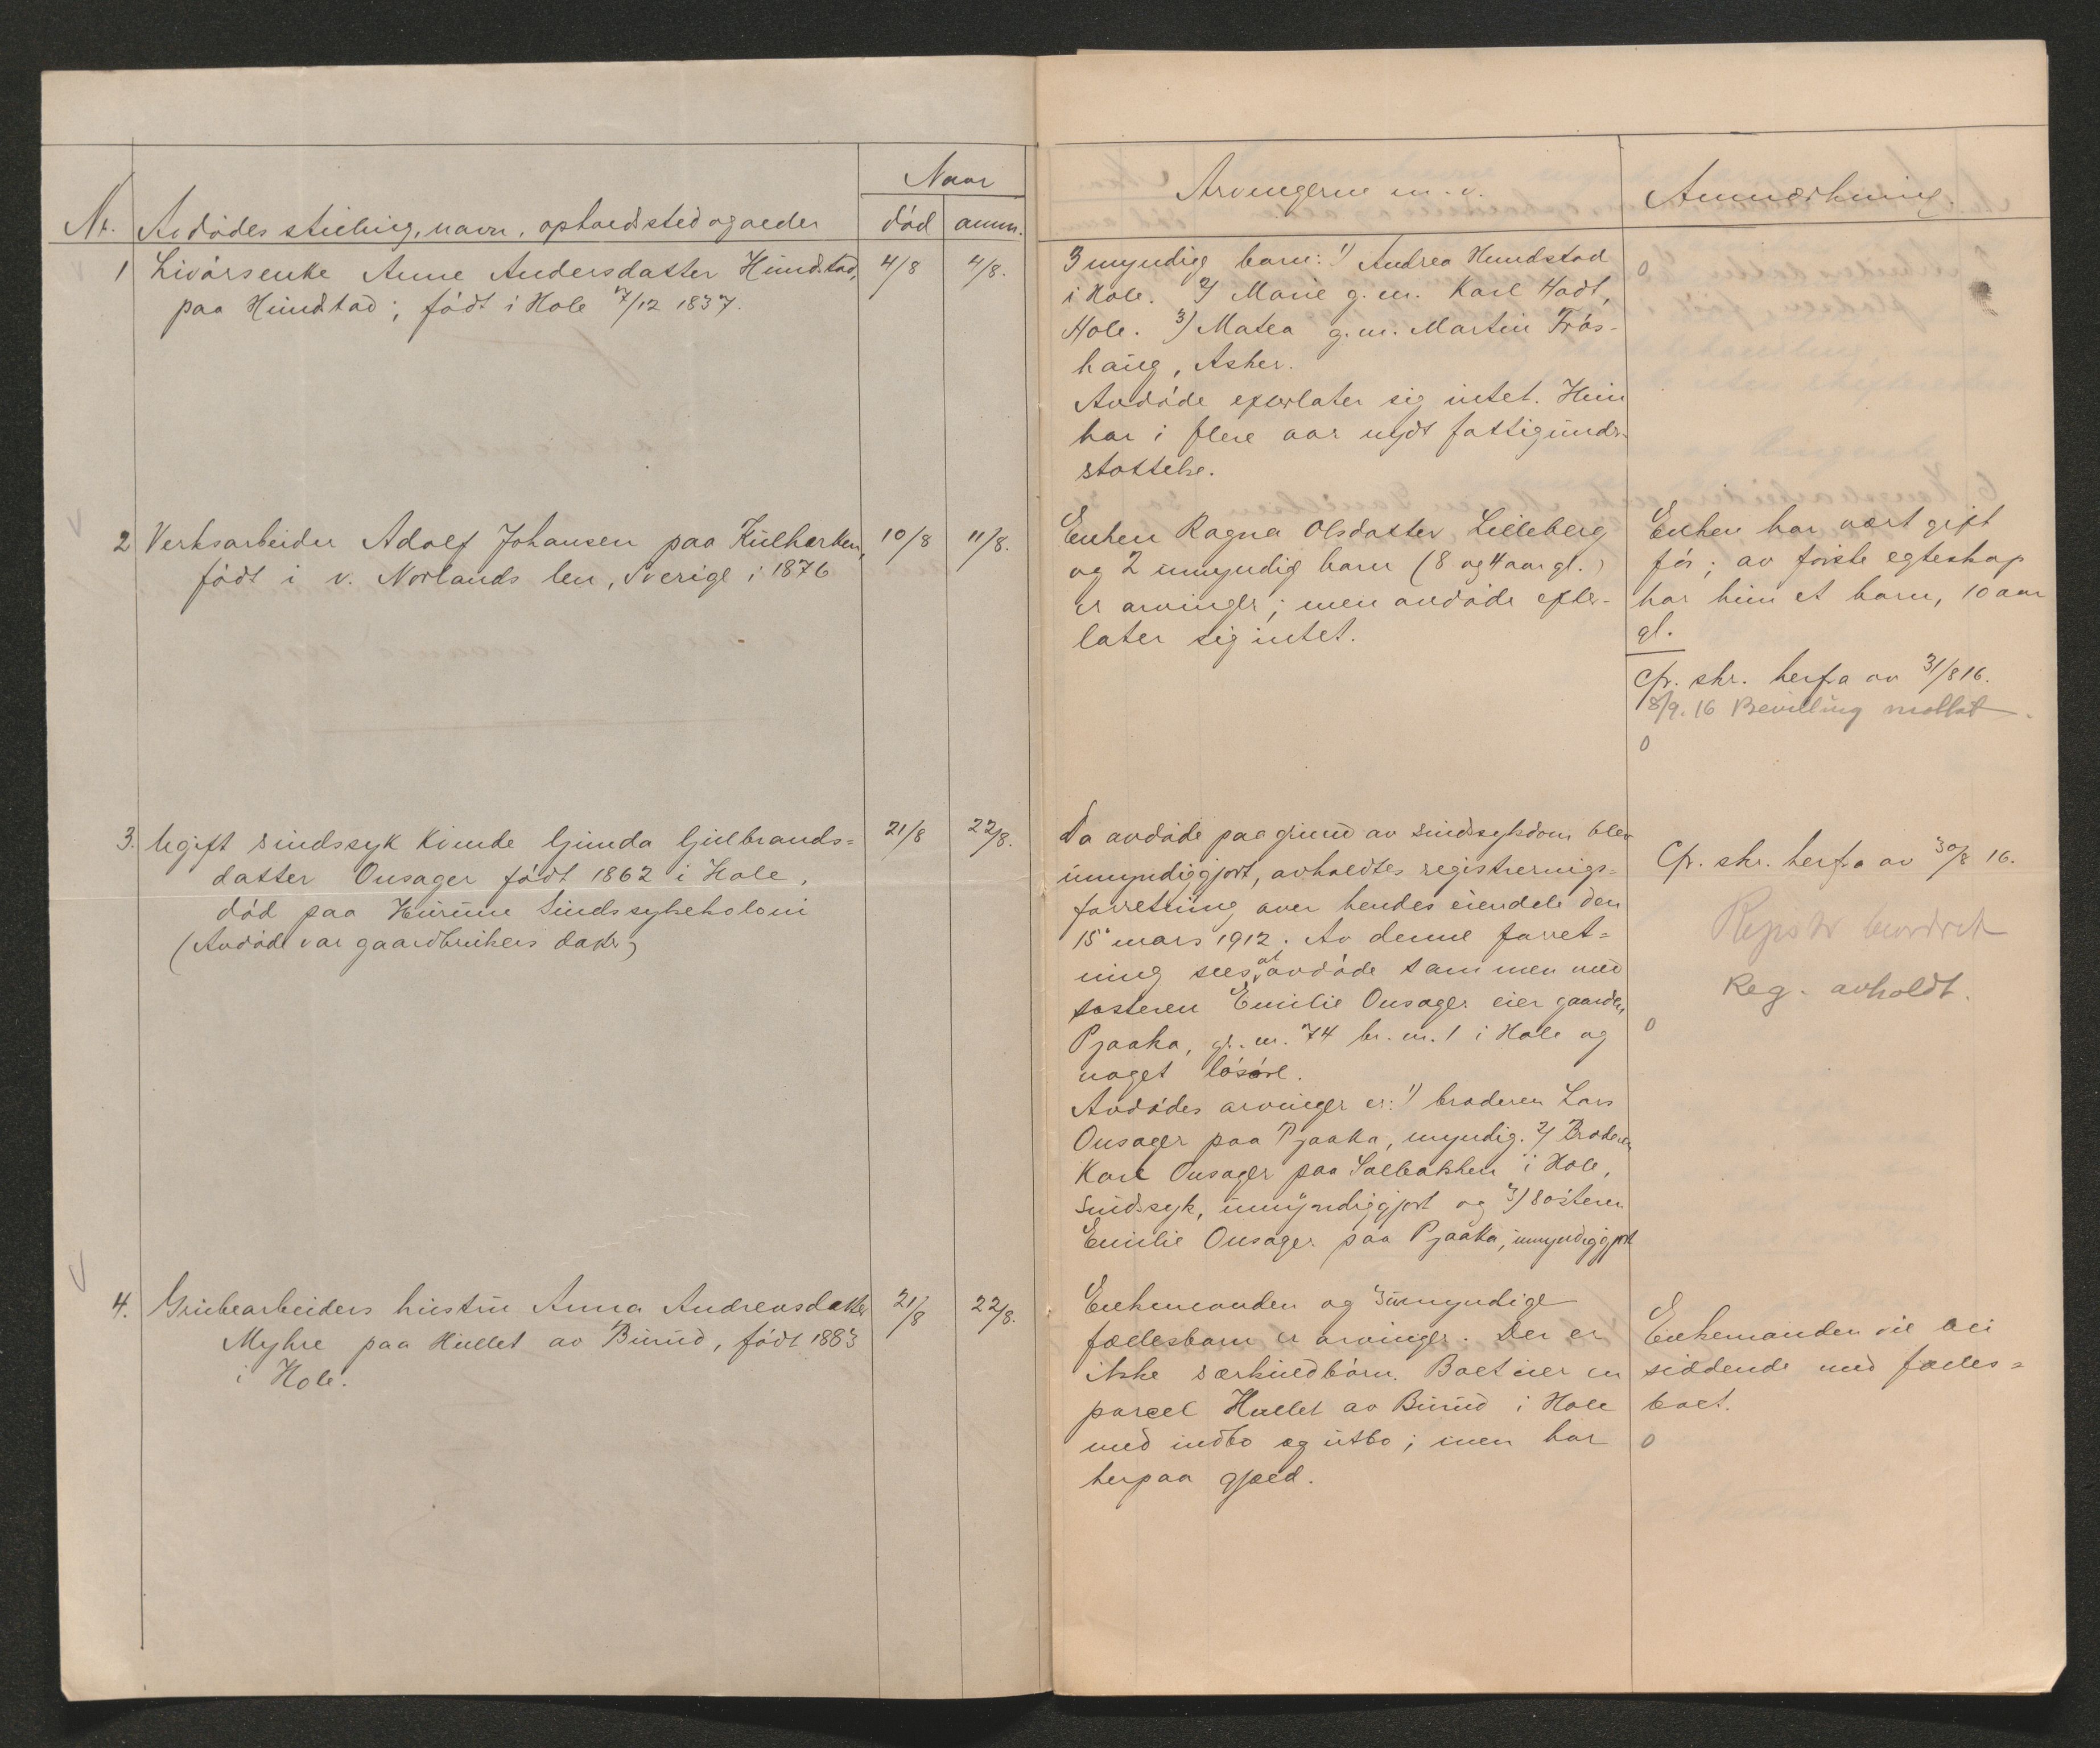 Naar
Nr. Avdødes stilling, navn, opholdssted og alder død anm.
1 Livørsenke Anne Andersdatter Hundstad, 4/8 4/8.
paa Hundstad; født i Hole 7/12 1837.
2 Verksarbeider Adolf Johansen paa 10/8 11/8.
født i v. Norlands len, Sverige i 1876
3. Ugift sindssyk kvinde Gunda Gulbrands=
datter Onsager født 1862 i Hole, 21/8 22/8.
død paa Sindssykekoloni
(Avdøde var gaardbrukers datter)
4. Grubearbeiders hustru Anna Andreasdatter 21/8 22/8.
Myhre paa Hullet av Burud, født 1883
i Hole.
Arvingerne m.v.
3 myndig barn: 1) Andrea Hundstad
i Hole. 2) Marie g.m. Karl
Hole. 3) Matea g.m. Martin Frøs-
haug, Asker.
Avdøde efterlater sig intet. Hun
har i flere aar nydt fattigunder-
støttelse.
Enken Ragna Olsdatter Lilleberg
og 2 umyndig barn (8 og 4 aar gl.)
er arvinger; men avdøde efter-
later sig intet.
Da avdøde paa grund av sindsykdom blev
umyndiggjort, avholdtes registrerings-
forretning over hendes eiendele den
15 mars 1912. Av denne forret=
ning sees at avdøde sammen med
søsteren Emilie Onsager eier gaarden
Pjaaka, gr. nr. 74 br. nr. 1 i Hole og
noget løsøre.
Avdødes arvinger er: 1) broderen Lars
Onsager paa Pjaaka, myndig. 2) Broderen
Karl Onsager paa Solbakken i Hole,
Sindssyk, umyndiggjort og 3) Søsteren
Emilie Onsager paa Pjaaka, umyndiggjort
Enkemanden og 3 umyndige
fællesbarn er arvinger. Der er
ikke særkuldbørn. Boet eier en
parcel Hullet av Burud i Hole
med indbo og utbo; men har
herpaa gjæld.
Anmerkning.
0
Enken har vært gift
før; av første egteskap
har hun et barn, 10 aar
gl.
Cfr. skr. herfra av 31/8 16.
8/9. 16 Bevilling mottat.
0
Cfr. skr. herfra av 30/8 16.
Reg. avholdt.
0
Enkemanden vil bli
siddende med fælles=
boet.
0